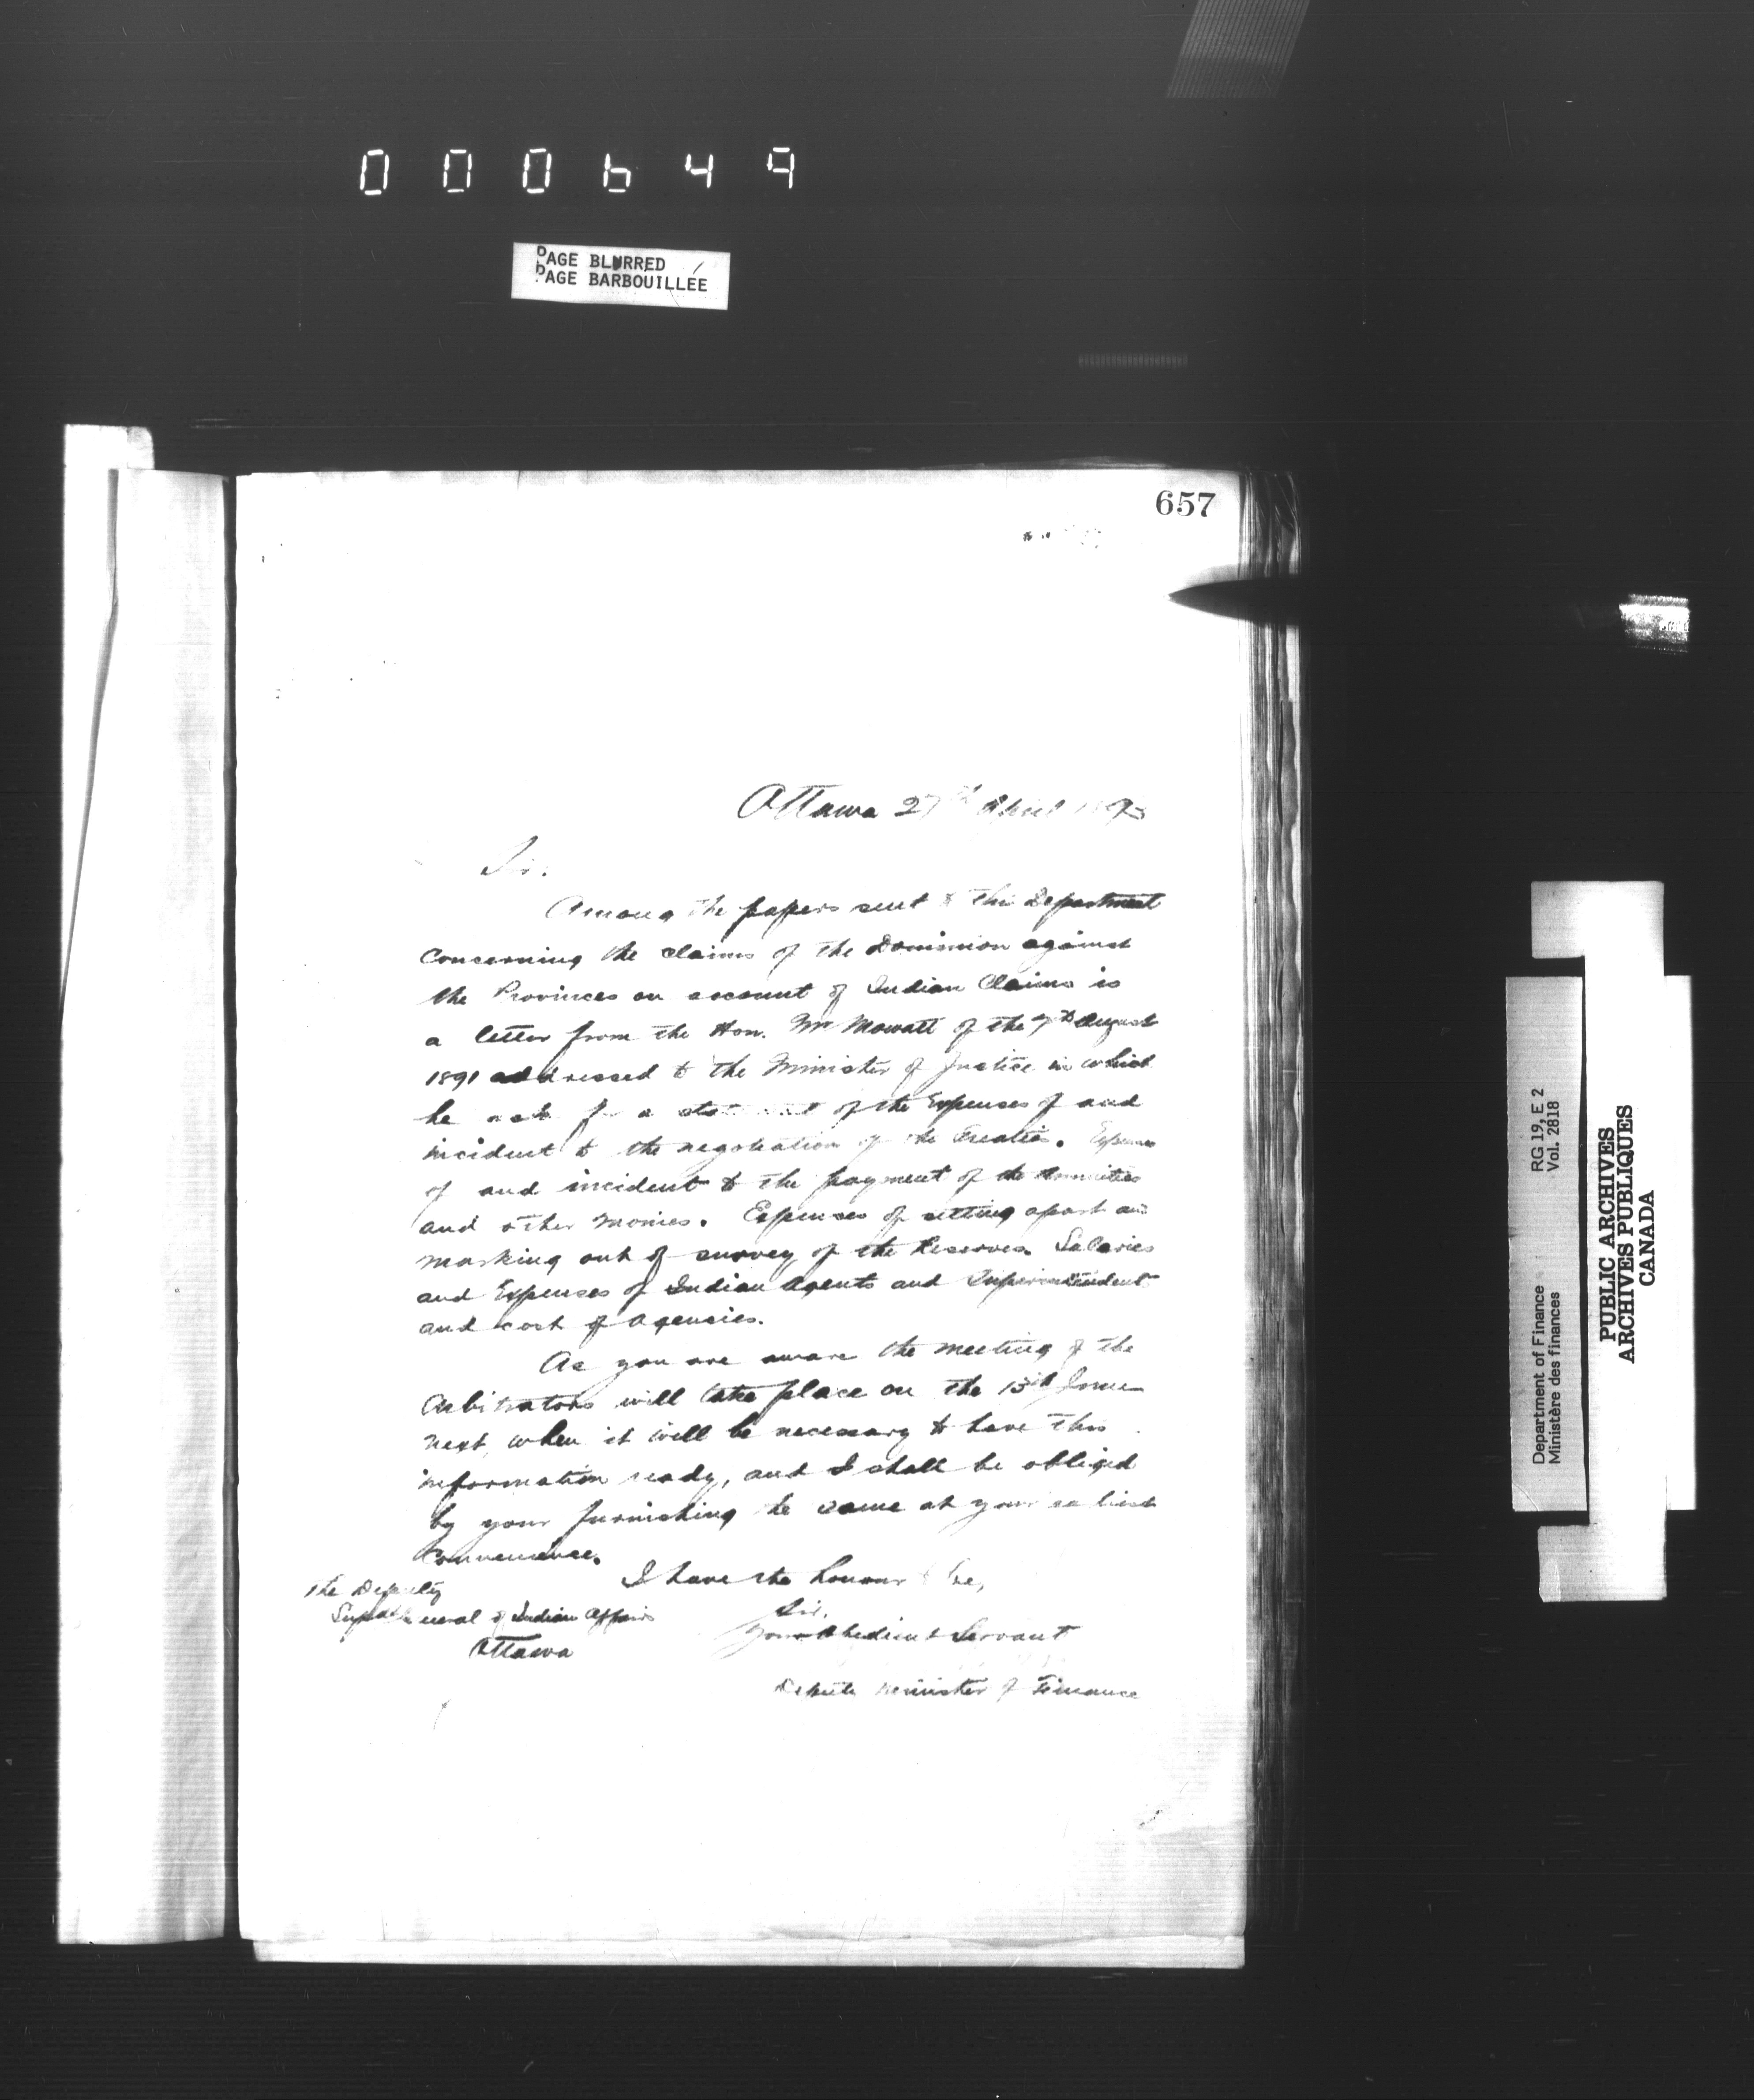 000649
PAGE BLURRED
PAGE BARBOUILLÉE
657
Ottawa 27th April 1893
Sir.
Among the papers sent to this Department
concerning the claims of the Dominion against
the Provinces on account of Indian Claims is
a letter from the Hon. Mr Mowatt of the 7th August
1891 addressed to the Minister of Justice in which
he ask for a statement of the Expenses of and
incident to the negotiation of the Treaties. Expenses
of and incident to the payment of the Annuities
and other monies. Expenses of setting apart and
marking out of survey of the Reserves. Salaries
and Expenses of Indian Agents and Superintendent
and cost of Agencies.
As you are aware the meeting of the
Arbitrators will take place on the 15th June
next, when it will be necessary to have this
information ready, and I shall be obliged
by your furnishing the same at your earliest
Convenience.
I have the honour to be,
Sir,
Your obedient Servant
Deputy Minister of Finance
The Deputy
Supdt General of Indian Affairs
Ottawa
Department of Finance RG 19, E 2
Ministère des finances Vol. 2818
PUBLIC ARCHIVES
ARCHIVES PUBLIQUES
CANADA